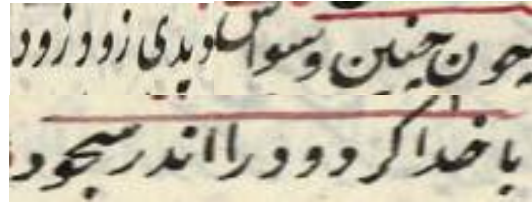 چون چنین وسواس دیدی زود زود
با خدا کرد و درا اندر سجود